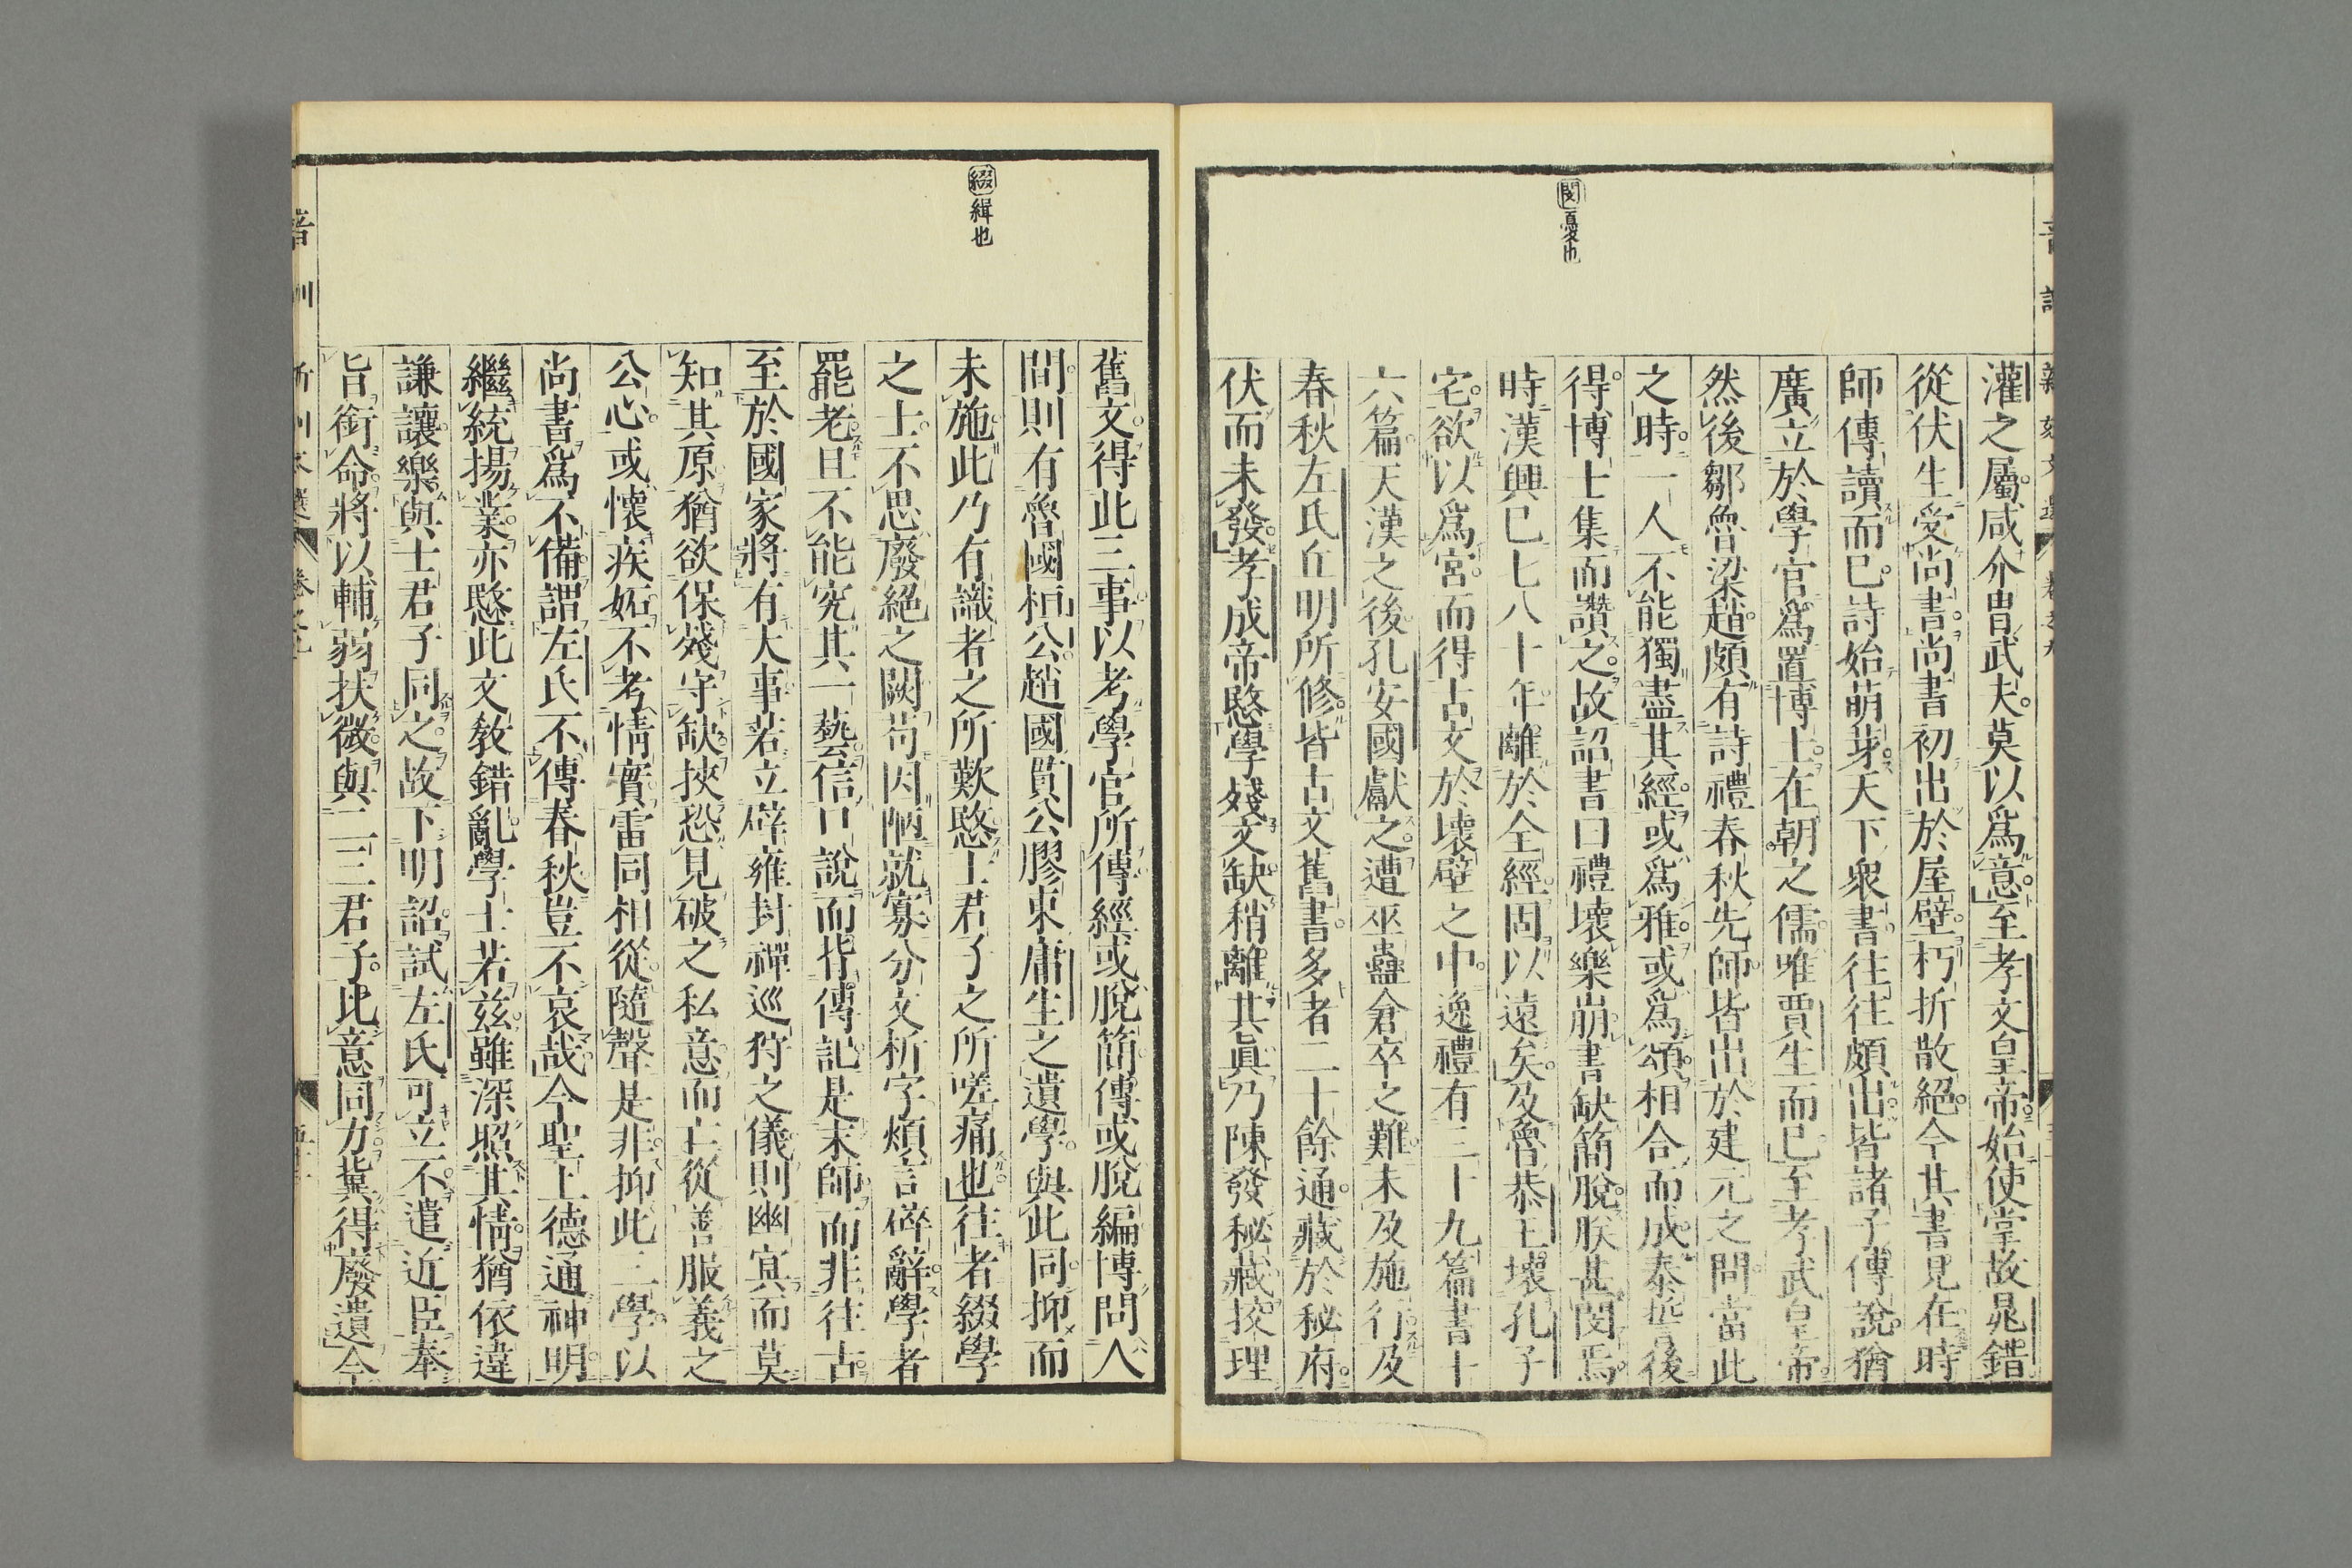 閔憂也
灌之屬咸介冑武夫莫以爲意至孝文皇帝始使掌故晁錯
從伏生受尚書尚書初出於屋壁朽折散絕今其書見在時
師傳讀而已詩始萌芽天下衆書往往頗出皆諸子傳說猶
廣立於學官爲置博士在朝之儒唯賈生而已至孝武皇帝
然後鄒魯梁趙頗有詩禮春秋先師皆出於建元之間當此
之時一人不能獨盡其經或爲雅或爲頌相合而成泰誓後
得博士集而讚之故詔書曰禮壞樂崩書缺簡脫朕甚閔焉
時漢興已七八十年離於全經固以遠矣及魯恭王壞孔子
宅欲以爲宮而得古文於壞壁之中逸禮有三十九篇書十
六篇天漢之後孔安國獻之遭巫蠱倉卒之難未及施行及
春秋左氏丘明所修皆古文舊書多者二十餘通藏於秘府
伏而未發孝成帝愍學殘文缺稍離其眞乃陳發秘藏挍理
綴緝也
舊文得此三事以考學官所傳經或脫簡傳或脫編博問人
間則有魯國桓公趙國貫公膠東庸生之遺學與此同抑而
未施此乃有識者之所歎愍士君子之所嗟痛也往者綴學
之士不思廢絕之闕苟因陋就寡分文析字煩言碎辭學者
罷老且不能究其一藝信口說而背傳記是末師而非往古
至於國家將有大事若立辟雍封禪巡狩之儀則幽冥而莫
知其原猶欲保殘守缺挾恐見破之私意而亡從善服義之
公心或懷疾妬不考情實雷同相從隨聲是非抑此三學以
尚書爲不備謂左氏不傳春秋豈不哀哉今聖上德通神明
繼統揚業亦愍此文敎錯亂學士若玆雖深照其情猶依違
謙讓樂與士君子同之故下明詔試左氏可立不遣近臣奉
旨銜命將以輔弱扶微與二三君子比意同力冀得廢遺今